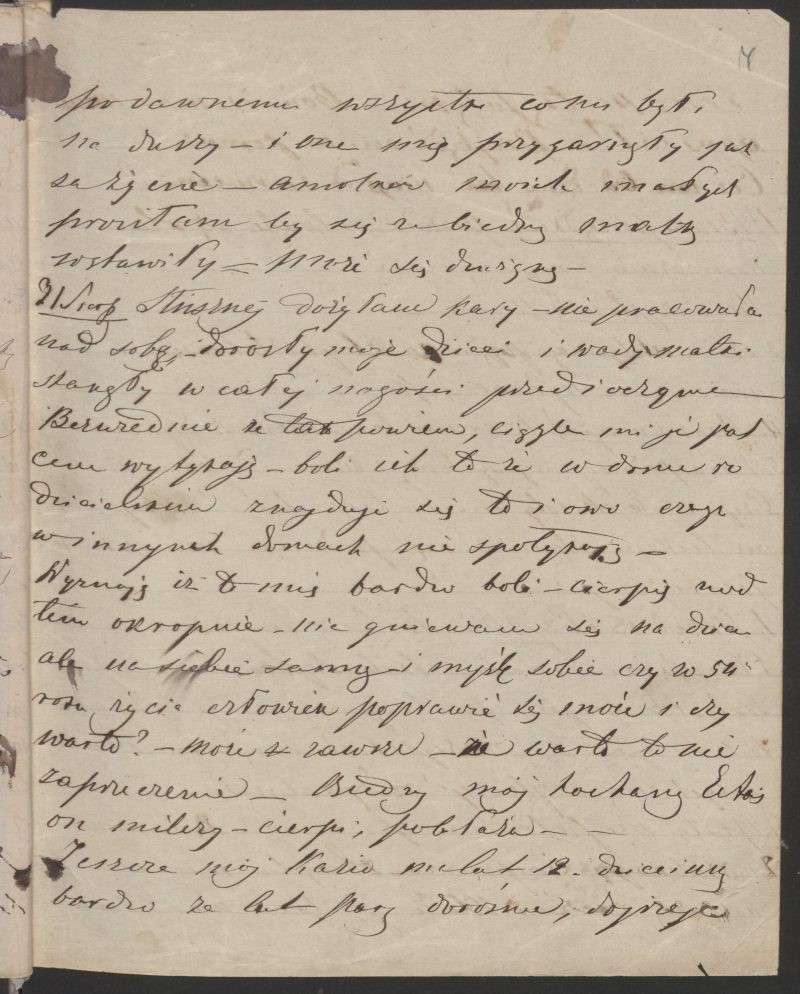 po dawnemu wszystko co mi było
na duszy – i one mię przygarnęły jak
za życia – a mołnie moich małych
prosiłam by się za biedną matką
wstawiły – Może się dźwignę –
31 Sierp Słusznej dożyłam kary – nie pracowała
nad sobą, dorosły moje dzieci i wady matki
stanęły w całej nagości przed i oczyma
Bezwiednie że tak powiem, ciągle mi je pal
cem wytykają – boli ich to że w domu ro
dzicielskim znajduje się to i owo czego
w innych domach nie spotykają –
Wyznaję iż to mię bardzo boli – cierpię nad
tem okropnie – nie gniewam się na dzieci
ale na siebie samą – i myślę sobie czy w 54
roku życia człowiek poprawić się może i czy
warto? – może zawsze – że warto to nie
zaprzeczenie – Biedny mój kochany
on milczy – cierpi, pobłaża – –
Jeszcze mój Kazio ma lat 12. dziecinny
bardzo za lat parę dorośnie, dojrzeje